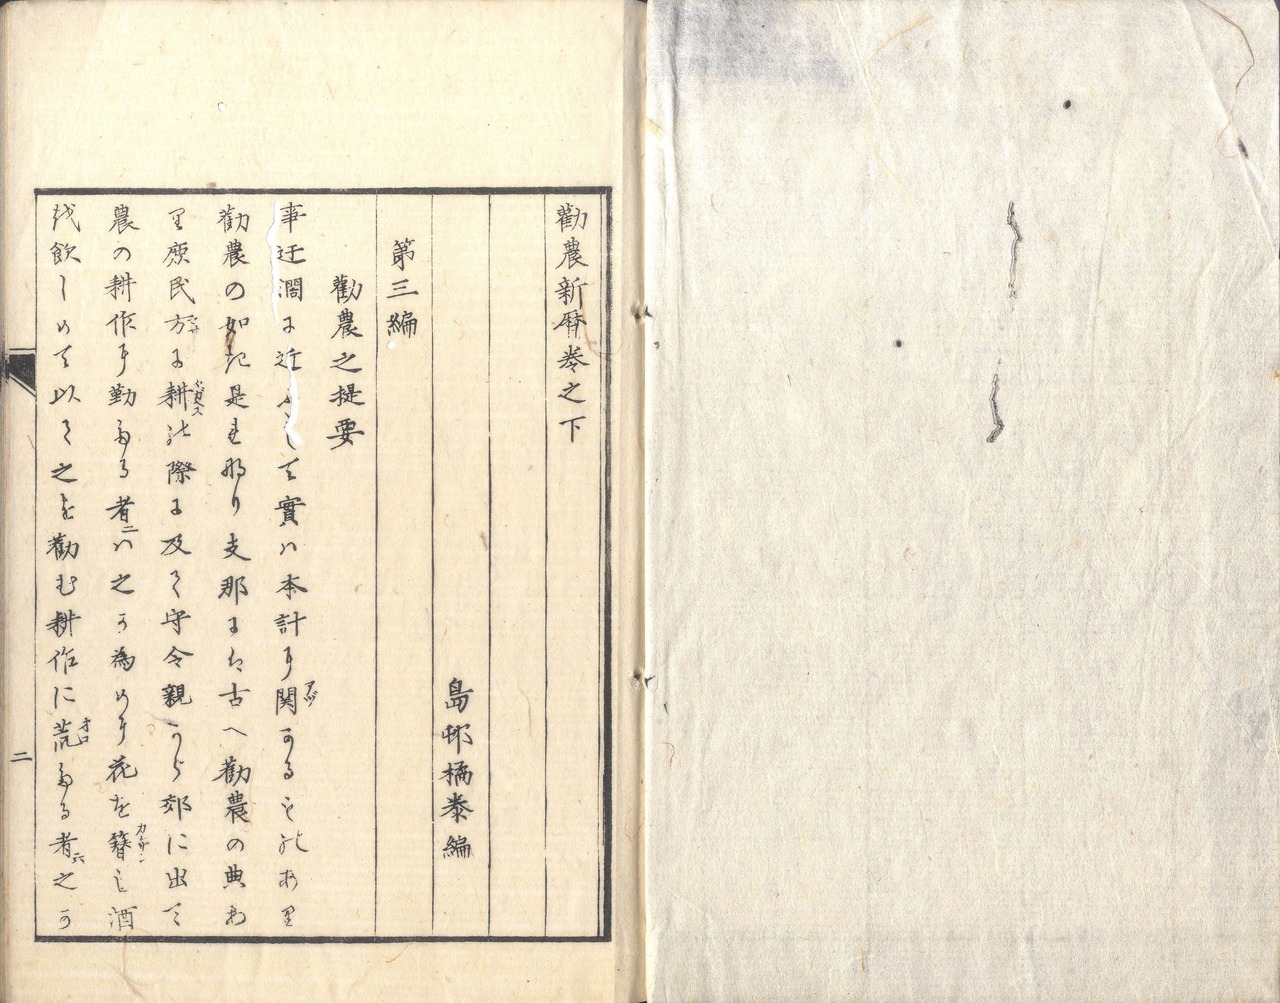 勸農新暦巻之下
島邨橘泰編
第三編
勸農之提要
事迂濶に近して實ハ本計に関かるものあり
勧農の如き是れなり支那には古へ勸農の典あ
り庶民方に耕の際に及て守令親から郊に出て
農の耕作に勤なる者ニハ之か為めに花を簪し酒
を飲しめて以て之を勧む耕作に荒なる者ニハ之か
二